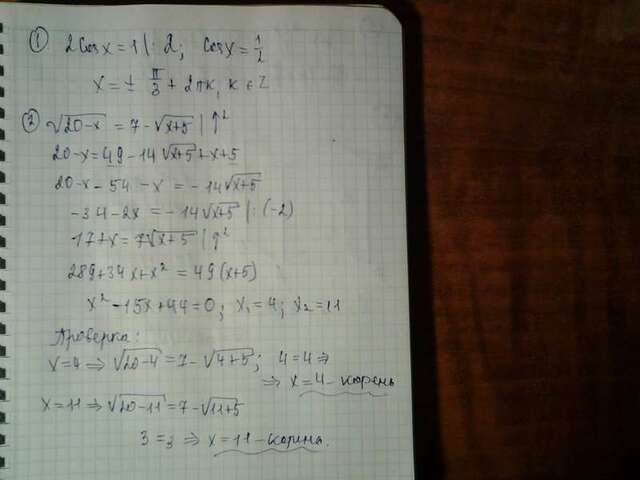 ① 2cosx=1 |:2; cosx=1/2
x=± π/3 + 2πк, к∈Z
② √(20-x) = 7-√(x+5) |↑²
20-x=49-14√(x+5)+x+5
20-x-54-x=-14√(x+5)
-34-2x=-14√(x+5) |:(-2)
17+x=7√(x+5) |↑²
289+34x+x²=49(x+5)
x²-15x+44=0; x₁=4; x₂=11
Проверка:
x=4⇒√(20-4)=7-√(4+5); 4=4⇒
⇒ x=4-корень
x=11⇒√(20-11)=7-√(11+5)
3=3⇒x=11-корень.